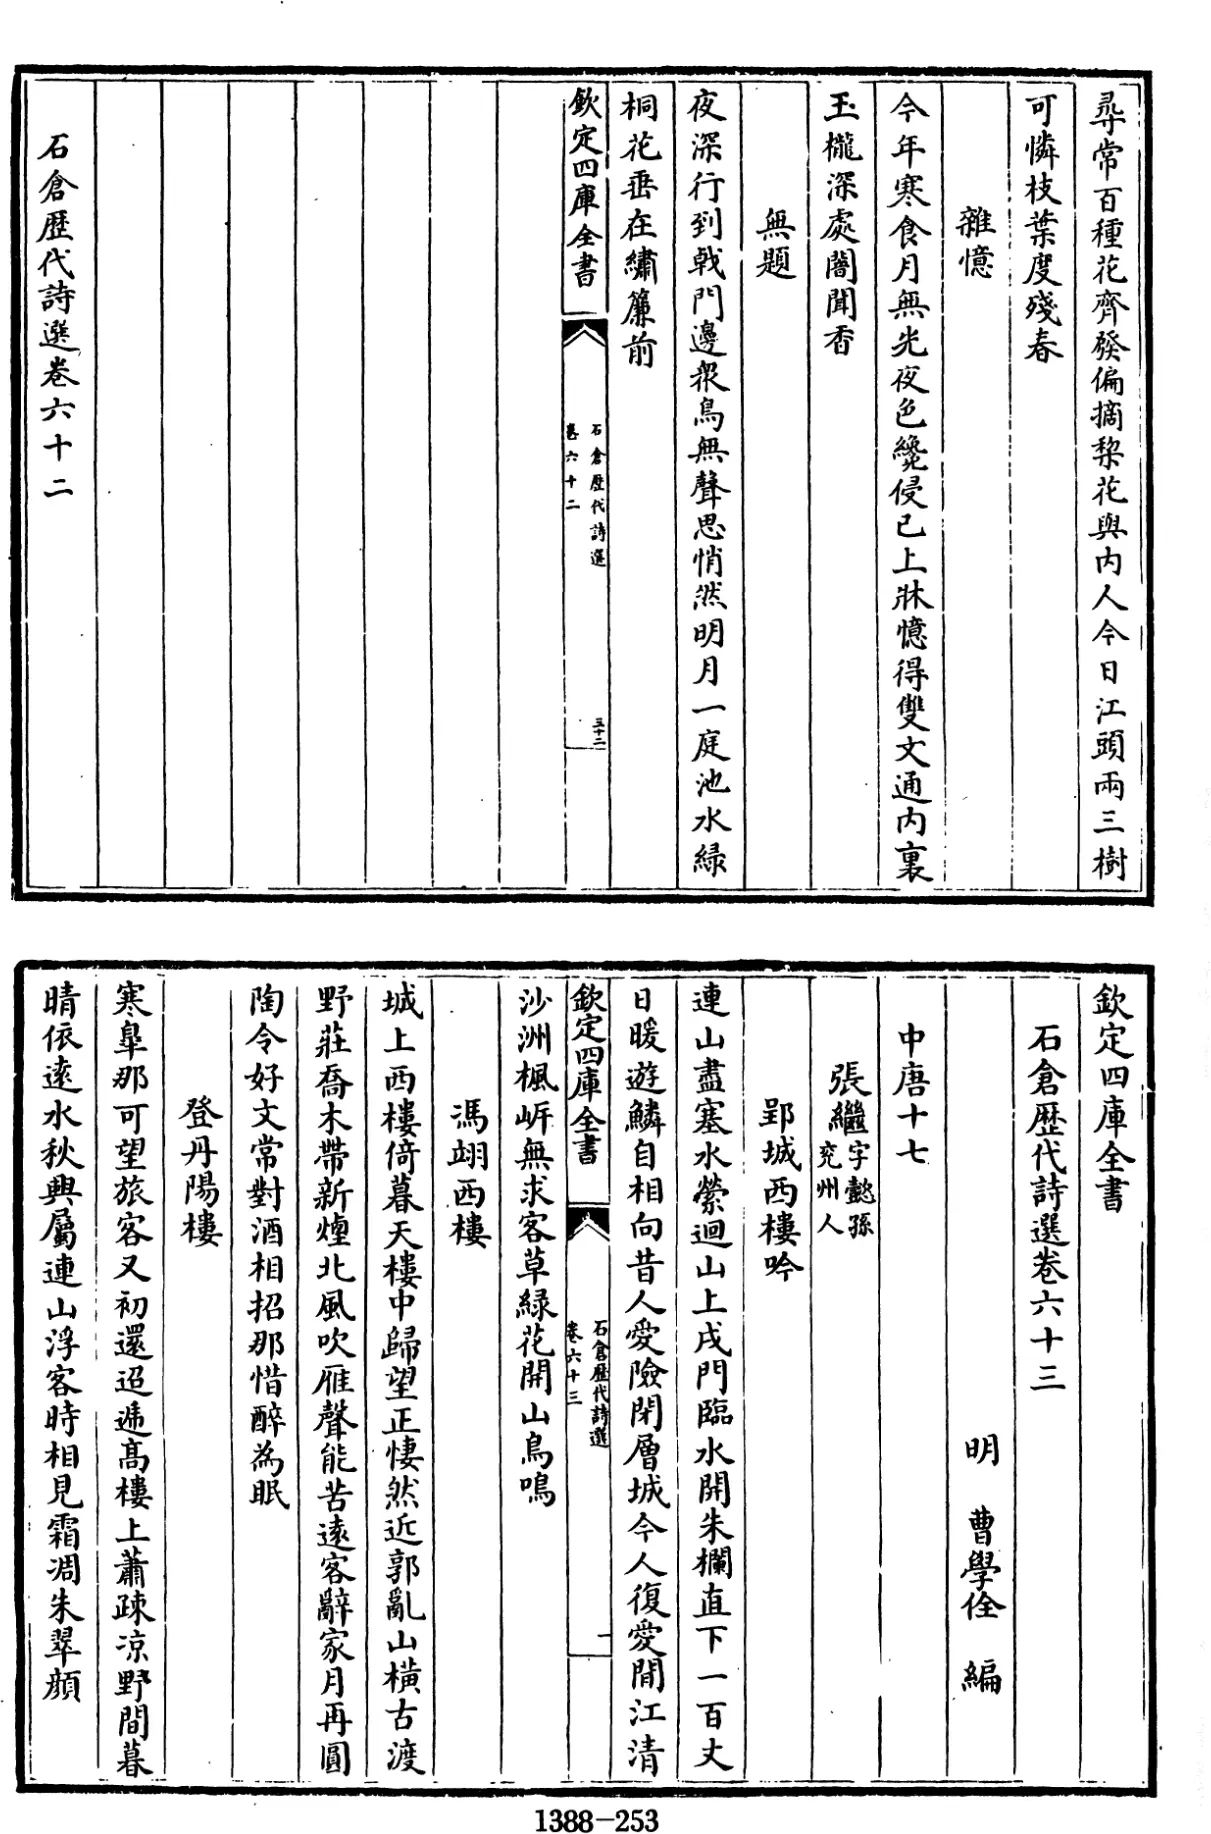 尋常百種花齊發偏摘棃花與内人今日江頭兩三樹
可憐枝葉度殘春
雜憶
今年寒食月無光夜色纔侵已上牀憶得雙文通内裏
玉櫳深處闇聞香
無題
夜深行到戟門邊衆鳥無聲思悄然明月一庭池水緑
桐花垂在繡簾前
欽定四庫全書
石倉歴代詩選
卷六十二
三十二
石倉歴代詩選卷六十二
欽定四庫全書
石倉歴代詩選卷六十三
明 曹學佺 編
中唐十七
張繼字懿孫
兖州人
郢城西樓吟
連山盡塞水縈迴山上戍門臨水開朱欄直下一百丈
日暖遊鱗自相向昔人愛險閉層城今人復愛閒江清
欽定四庫全書
石倉歴代詩選
卷六十三
一
沙洲楓岍無求客草緑花開山鳥鳴
馮翊西樓
城上西樓倚暮天樓中歸望正悽然近郭亂山横古渡
野莊喬木帶新煙北風吹雁聲能苦遠客辭家月再圓
陶令好文常對酒相招那惜醉為眠
登丹陽樓
寒臯那可望旅客又初還迢遞髙樓上蕭疎凉野間暮
晴依遠水秋興屬連山浮客時相見霜凋朱翠顔
1388-253